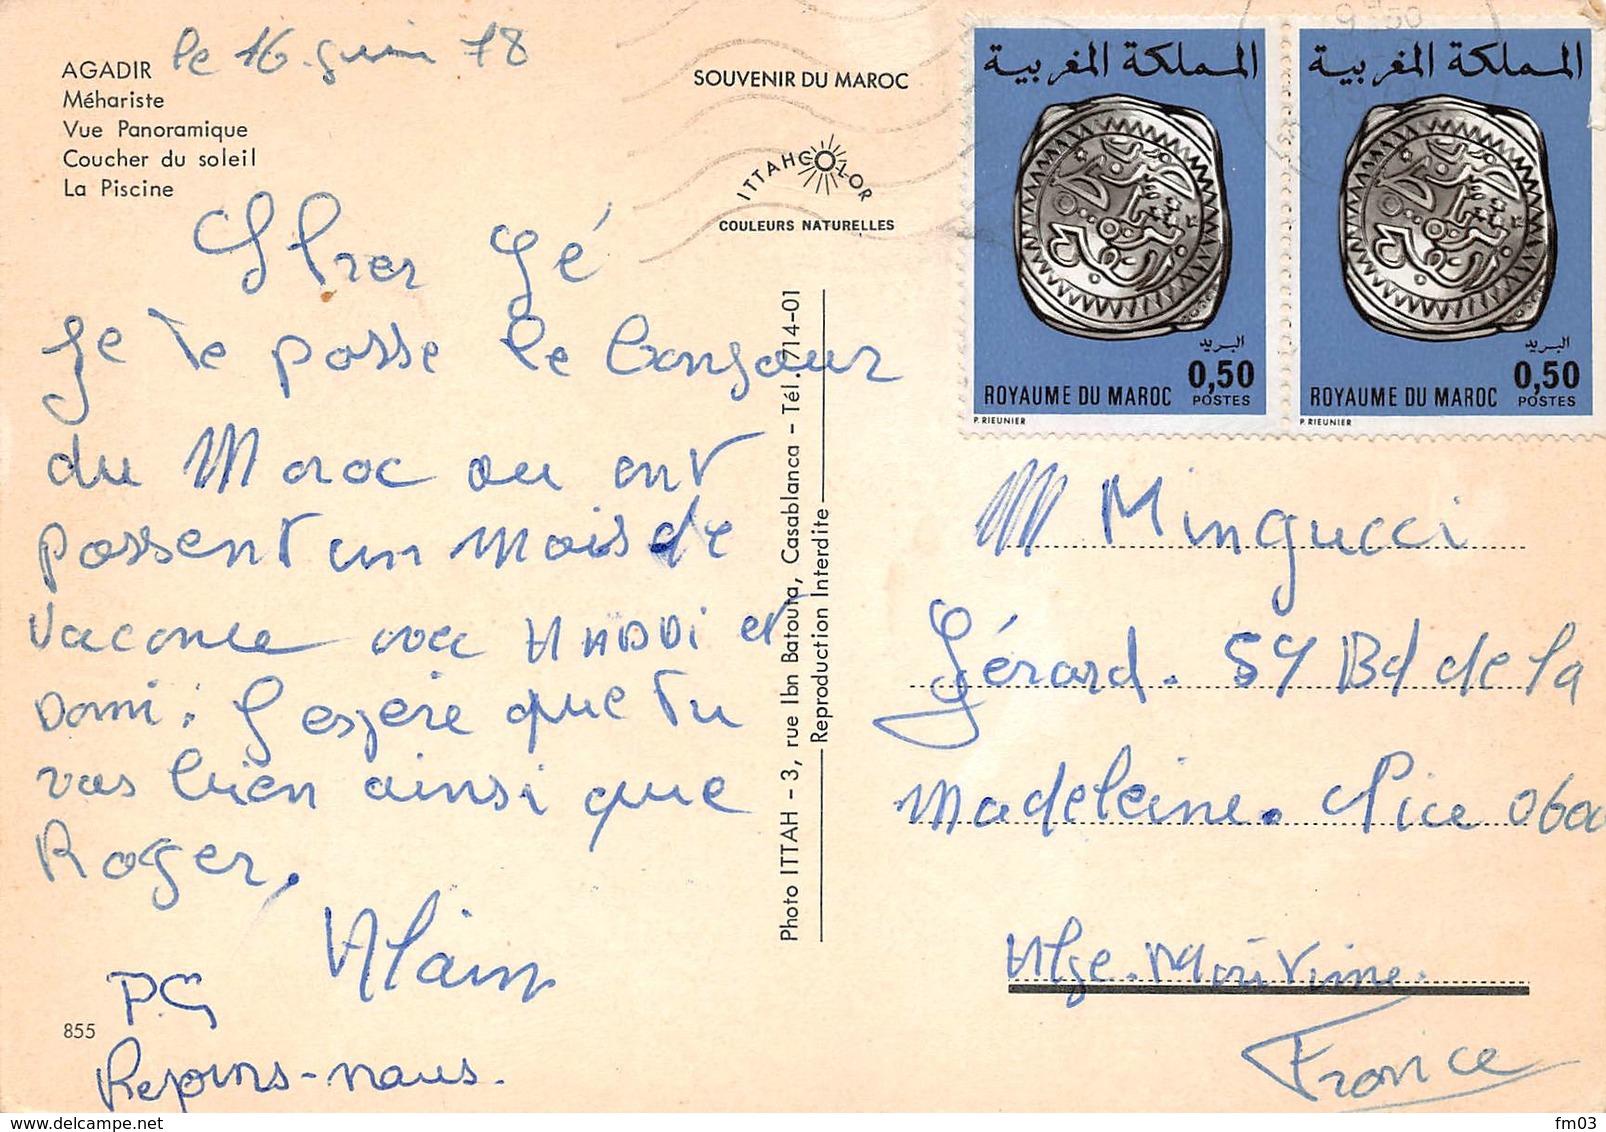 AGADIR le 16 juin 78
Méhariste
Vue Panoramique
Coucher du soleil
La Piscine
SOUVENIR DU MAROC
ITTAHCOLOR
COULEURS NATURELLES
Cher Gé
Je te passe le bonjour
du Maroc ou ont
passent un mois de
vacance avec HADDi et
Domi. J'espère que tu
vas bien ainsi que
Roger,
Alain
P.S
Repons-nous.
855
Photo ITTAH - 3, rue Ibn Batouta, Casablanca - Tél. 714-01
Reproduction Interdite
المملكة المغربية
البريد
0,50
ROYAUME DU MAROC POSTES
P. RIEUNIER
المملكة المغربية
البريد
0,50
ROYAUME DU MAROC POSTES
P. RIEUNIER
M Mingucci
Gérard. 59 Bd de la
Madeleine. Nice 0600
Alpe-Maritime.
France
delcampe.net
fm03